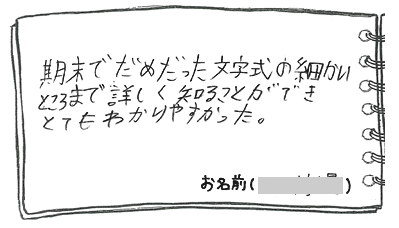 期末でだめだった文字式の細かい
ところまで詳しく知ることができ
とてもわかりやすかった。
お名前( )